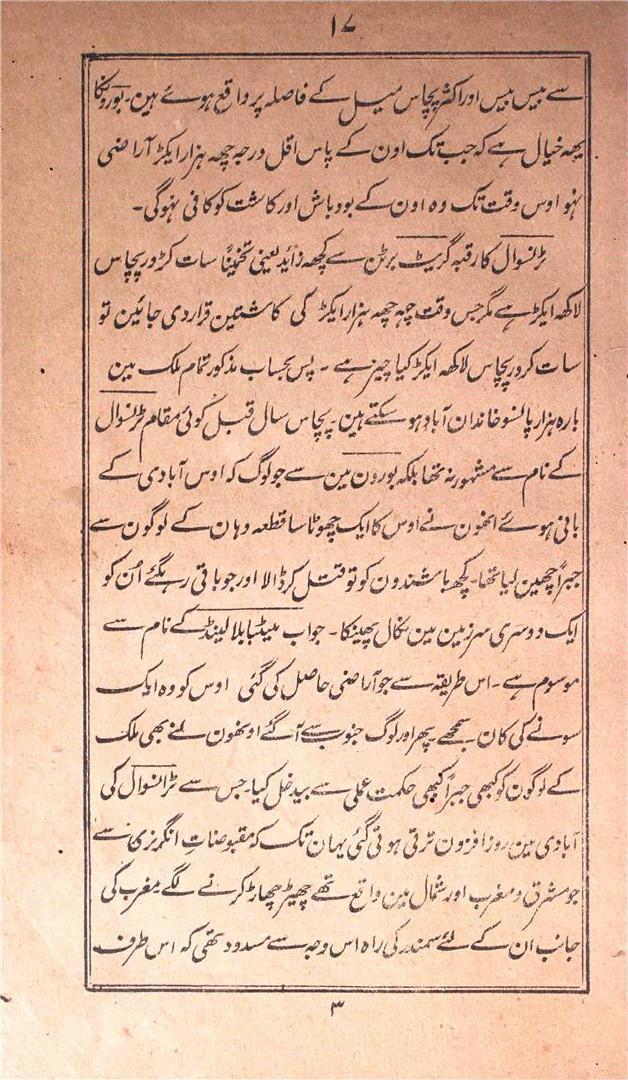 ۱۷
سے بیس بیس اور اکثر پچاس میل کے فاصلہ پر واقع ہوئے ہین۔ بورونکا
یہہ خیال ہے کہ جب تک اون کے پاس اقل درجہ چھہ ہزار ایکڑ آراضی
نہو اوس وقت تک وہ اون کے بود باش اور کاشت کو کافی نہوگی۔
ٹرانسوال کا رقبہ گریٹ برٹن سے کچھہ زائد یعنی تخمیناً سات کڑور پچاس
لاکھہ ایکڑ ہے مگر جس وقت چہہ چھہ ہزار ایکڑ کی کاشتین قرار دی جائین تو
سات کرور پچاس لاکھہ ایکڑ کیا چیز ہے ۔ پس بحساب مذکور تمام ملک مین
بارہ ہزار پانسو خاندان آباد ہو سکتے ہین۔ پچاس سال قبل کوئی مقام ٹرانسوال
کے نام سے مشہور نہ تھا بلکہ بورون مین سے جو لوگ کہ اوس آبادی کے
بانی ہوئے انھون نے اوس کا ایک چھوٹا سا قطعہ وہان کے لوگون سے
جبراً چھین لیا تھا۔ کچھہ باشندون کو تو قتل کر ڈالا اور جو باقی رہگئے اُن کو
ایک دوسری سرزمین مین نکال پھینکا۔ جو اب میٹبابلا لینڈ کے نام سے
موسوم ہے۔ اس طریقہ سے جو آراضی حاصل کی گئی اوس کو وہ ایک
سونے کی کان سمجھے پھر اور لوگ جنوب سے آگئے اونھون نے بھی ملک
کے لوگون کو کبھی جبراً کبھی حکمت عملی سے بیدخل کیا۔ جس سے ٹرانسوال کی
آبادی مین روز افزون ترقی ہوتی گئی یہان تک کہ مقبوضات انگریزی سے
جو مشرق و مغرب اور شمال مین واقع تھے چھیڑ چھاڑ کرنے لگے مغرب کی
جانب ان کے لئے سمندر کی راہ اس وجہ سے مسدود تھی کہ اس طرف
۳